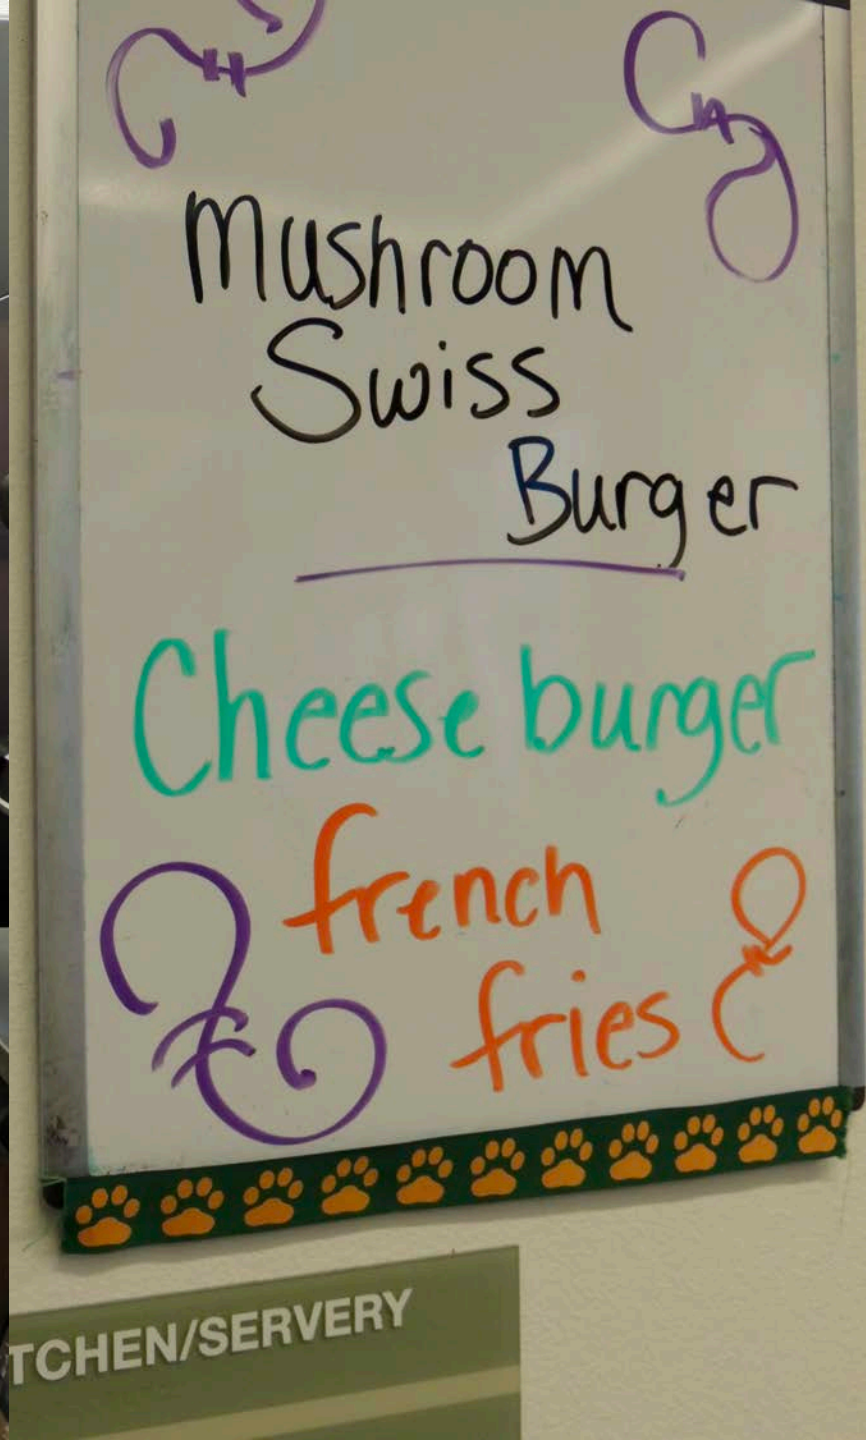 Mushroom
Swiss
Burger
Cheese burger
french
fries
TCHEN/SERVERY